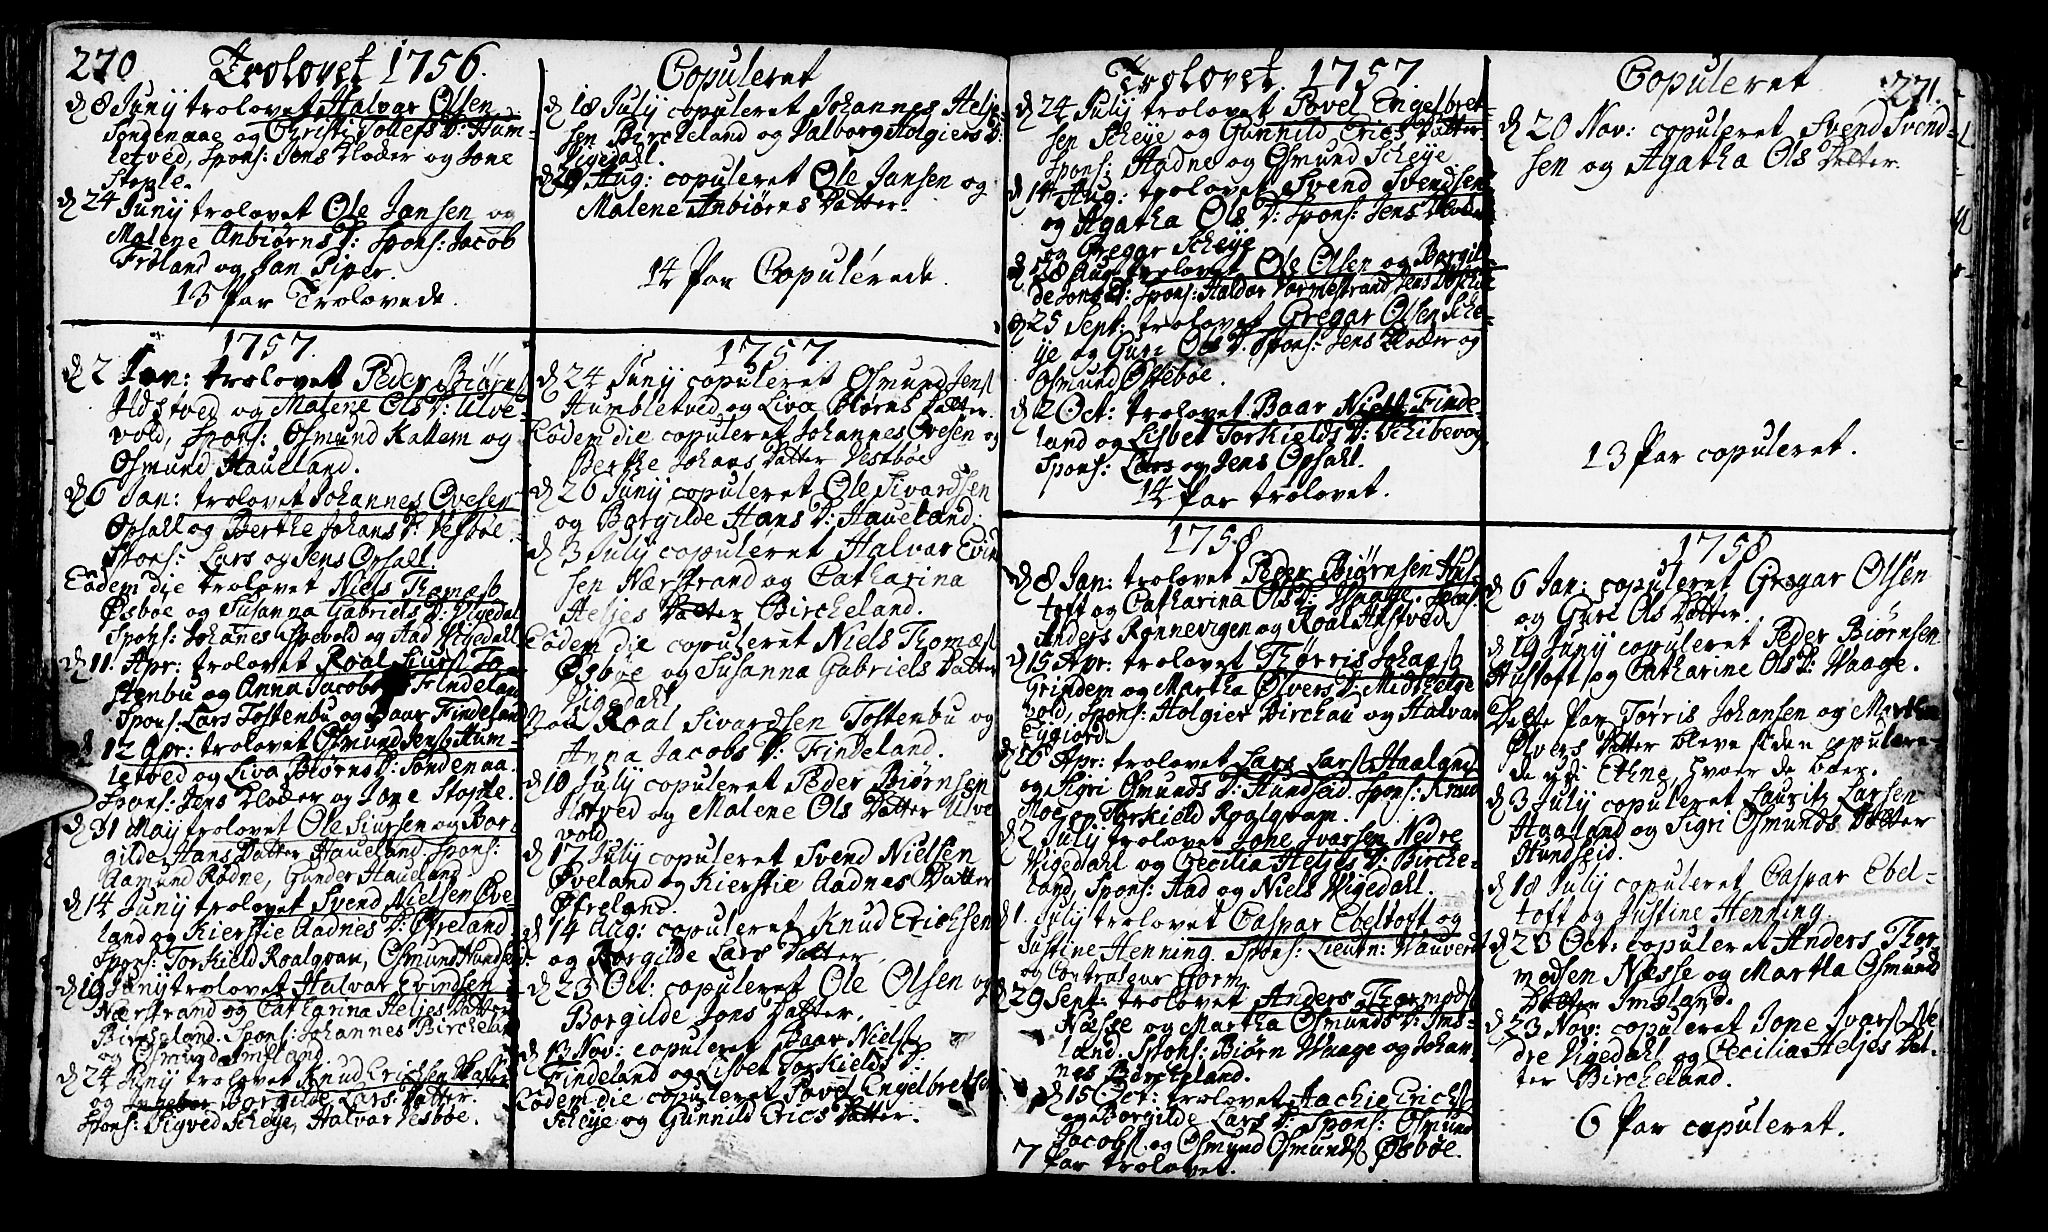 270 Trolovet 1756.
d 8 Junij trolovet Halvar Olsen
Søndenaae og Christi Tollefs D: Hum-
letved, Spons: Jens Kloder og Jone
Stople.
d 24 Junij trolovet Ole Jansen og
Malene Anbiørns D: Spons: Jacob
Frøland og Jan Piper.
13 Par Trolovede.
1757.
d 2 Jan: trolovet Peder Biørns
Udstved og Malene Ols D: Ulve-
vold, Spons: Osmund Kallem og
Osmund Haueland.
d 6 Jan: trolovet Johannes Ovesen
Opsall og Berthe Johans D: Vestbøe.
Spons: Lars og Jens Opsall
Eodem die trolovet Niels Thomæs
Øsbøe og Susanna Gabriels D: Vigedal
Spons: Johanes Espevold og Aad Vigedahl
d 11. Apr: trolovet Roal Siurs To-
stenbu og Anna Jacobs Findeland
Spons: Lars Tostenbu og Baar Findeland
d 12 Apr: trolovet Osmund Jens Hum-
letved og Liva Biørns D: Søndenaa.
Spons: Jens Kloder og Jone Stople.
d 31 Maij trolovet Ole Siursen og Bor-
gilde Hans Datter Haueland Spons:
Aamund Rødne, Gunder Haueland
d 14 Junij trolovet Svend Nielsen Øve-
land og Kierstie Aadnes D: Øfreland
Spons: Torkield Roalqvam, Osmund Hundseid.
d 19 Junij trolovet Halvar Evindsen
Nærstrand og Catharina Heljes Datter
Bircheland. Spons: Johannes Bircheland
og Osmund Imsland.
d 24 Junij trolovet Knud Erichsen
og Borgilde Lars Datter.
Spons: Sigved Scheye, Halvar Vesbøe.
Copuleret
d 18 Julij copuleret Johannes Helje-
sen Bircheland og Valborg Holgiers D:
Vigedahl.
d 29 Aug: copuleret Ole Jansen og
Malene Anbiørns Datter.
14 Par Copulerede.
1757
d 24 Junij copuleret Osmund Jens
Humbletved og Liva Biørns Datter.
Eodem die copuleret Johannes Ovesen og
Berthe Johans Datter Vestbøe
d 26 Junij copuleret Ole Sivardsen
og Borgilde Hans D: Haueland.
d 3 Julij copuleret Halvar Evind-
sen Nærstrand og Catharina
Heljes Datter Bircheland.
Eodem die copuleret Niels Thomæs
Øsbøe og Susanna Gabriels Datter
Vigedahl
Roal Sivardsen Tostenbu og
Anna Jacobs D: Findeland.
d 10 Julij copuleret Peder Biørnsen
Ustved og Malene Ols Datter Ulve
vold.
d 17 Julij copuleret Svend Nielsen
Øveland og Kierstie Aadnes Datter
Øfreland.
d 14 Aug: copuleret Knud Erichsen
og Borgilde Lars Datter.
d 23 Oct: copuleret Ole Olsen og
Borgilde Jons Datter.
d 13 Nov: copuleret Baar Niels
Findeland og Lisbet Torkields D:
Eodem die copuleret Povel Engelbretsen
Scheye og Gunnild Erics Datter.
Trolovet 1757.
d 24 Julij trolovet Povel Engelbret-
sen Scheye og Gunnild Erics Datter
Spons: Aadne og Osmund Scheye
d 14 Aug: trolovet Svend Svendsen
og Agatha Ols D: Spons: Jens Kloder
og Gregar Scheye
d 28 Aug: trolovet Ole Olsen og Borgil-
de Jons D: Spons: Haldor Varmestrand Jens
d 25 Sept: trolovet Gregar Olsen Sche-
ye og Guri Ols D: Spons: Jens Kloder og
Osmund Østebøe.
d 2 Oct: trolovet Baar Niels Finde-
land og Lisbet Torkields D: Schibevog
Spons: Lars og Jens Opsahl.
14 Par trolovet.
1758
d 8 Jan: trolovet Peder Biørnsen Hus-
toft og Catharina Ols D: Waage. Spons:
Anders Rønnevigen og Roal Ustved
d 15 Apr: trolovet Thørris Johans
Grindem og Martha Ølvers D: Midthelge
vold, Spons: Holgier Birchau og Halvar
Eygiord.
d 16 Apr: trolovet Lars Lars Haaland
og Sigri Osmunds D: Hundseid. Spons: Knud
Moe og Torkield Roalqvam.
d 2 Julij trolovet Jone Ivarsen Nedre
Vigedahl og Cecilia Heljes D: Birche-
land, Spons: Aad og Niels Vigedahl.
d 1. Julij trolovet Caspar Ebeltoft og
Justine Henning. Spons: Lieutn: Hauvert
og Contraleur Gorm.
d 29 Sept: trolovet Anders Thormods
Næsse og Martha Osmunds D: Ims-
land. Spons: Biørn Waage og Johan-
nes Bircheland.
d 15 Oct: trolovet Aachie Erichs
og Borgilde Lars D: Spons: Osmund
Jacobs og Osmund Osmunds Øsbøe.
7 Par trolovet.
Copuleret 271.
d 20 Nov: copuleret Svend Svend-
sen og Agatha Ols Datter.
13 Par copuleret.
1758
d 6 Jan: copuleret Gregar Olsen
og Guri Ols Datter.
d 19 Junij copuleret Peder Biørnsen
Hustoft og Catharine Ols D: Waage.
Dette Par Tørris Johansen og Martha
Ølvers Datter bleve siden copulere-
de udi Ethne, hvor de boer.
d 3 Julij copuleret Lauritz Larsen
Haaland og Sigri Osmunds Datter
Hundseid.
d 18 Julij copuleret Caspar Ebel-
toft og Justine Henning.
d 23 Oct: copuleret Anders Thor-
modsen Næsse og Martha Osmunds
Datter Imsland.
d 23 Nov: copuleret Jone Ivars Ne-
dre Vigedahl og Cecilia Heljes Dat-
ter Bircheland.
6 Par copuleret.